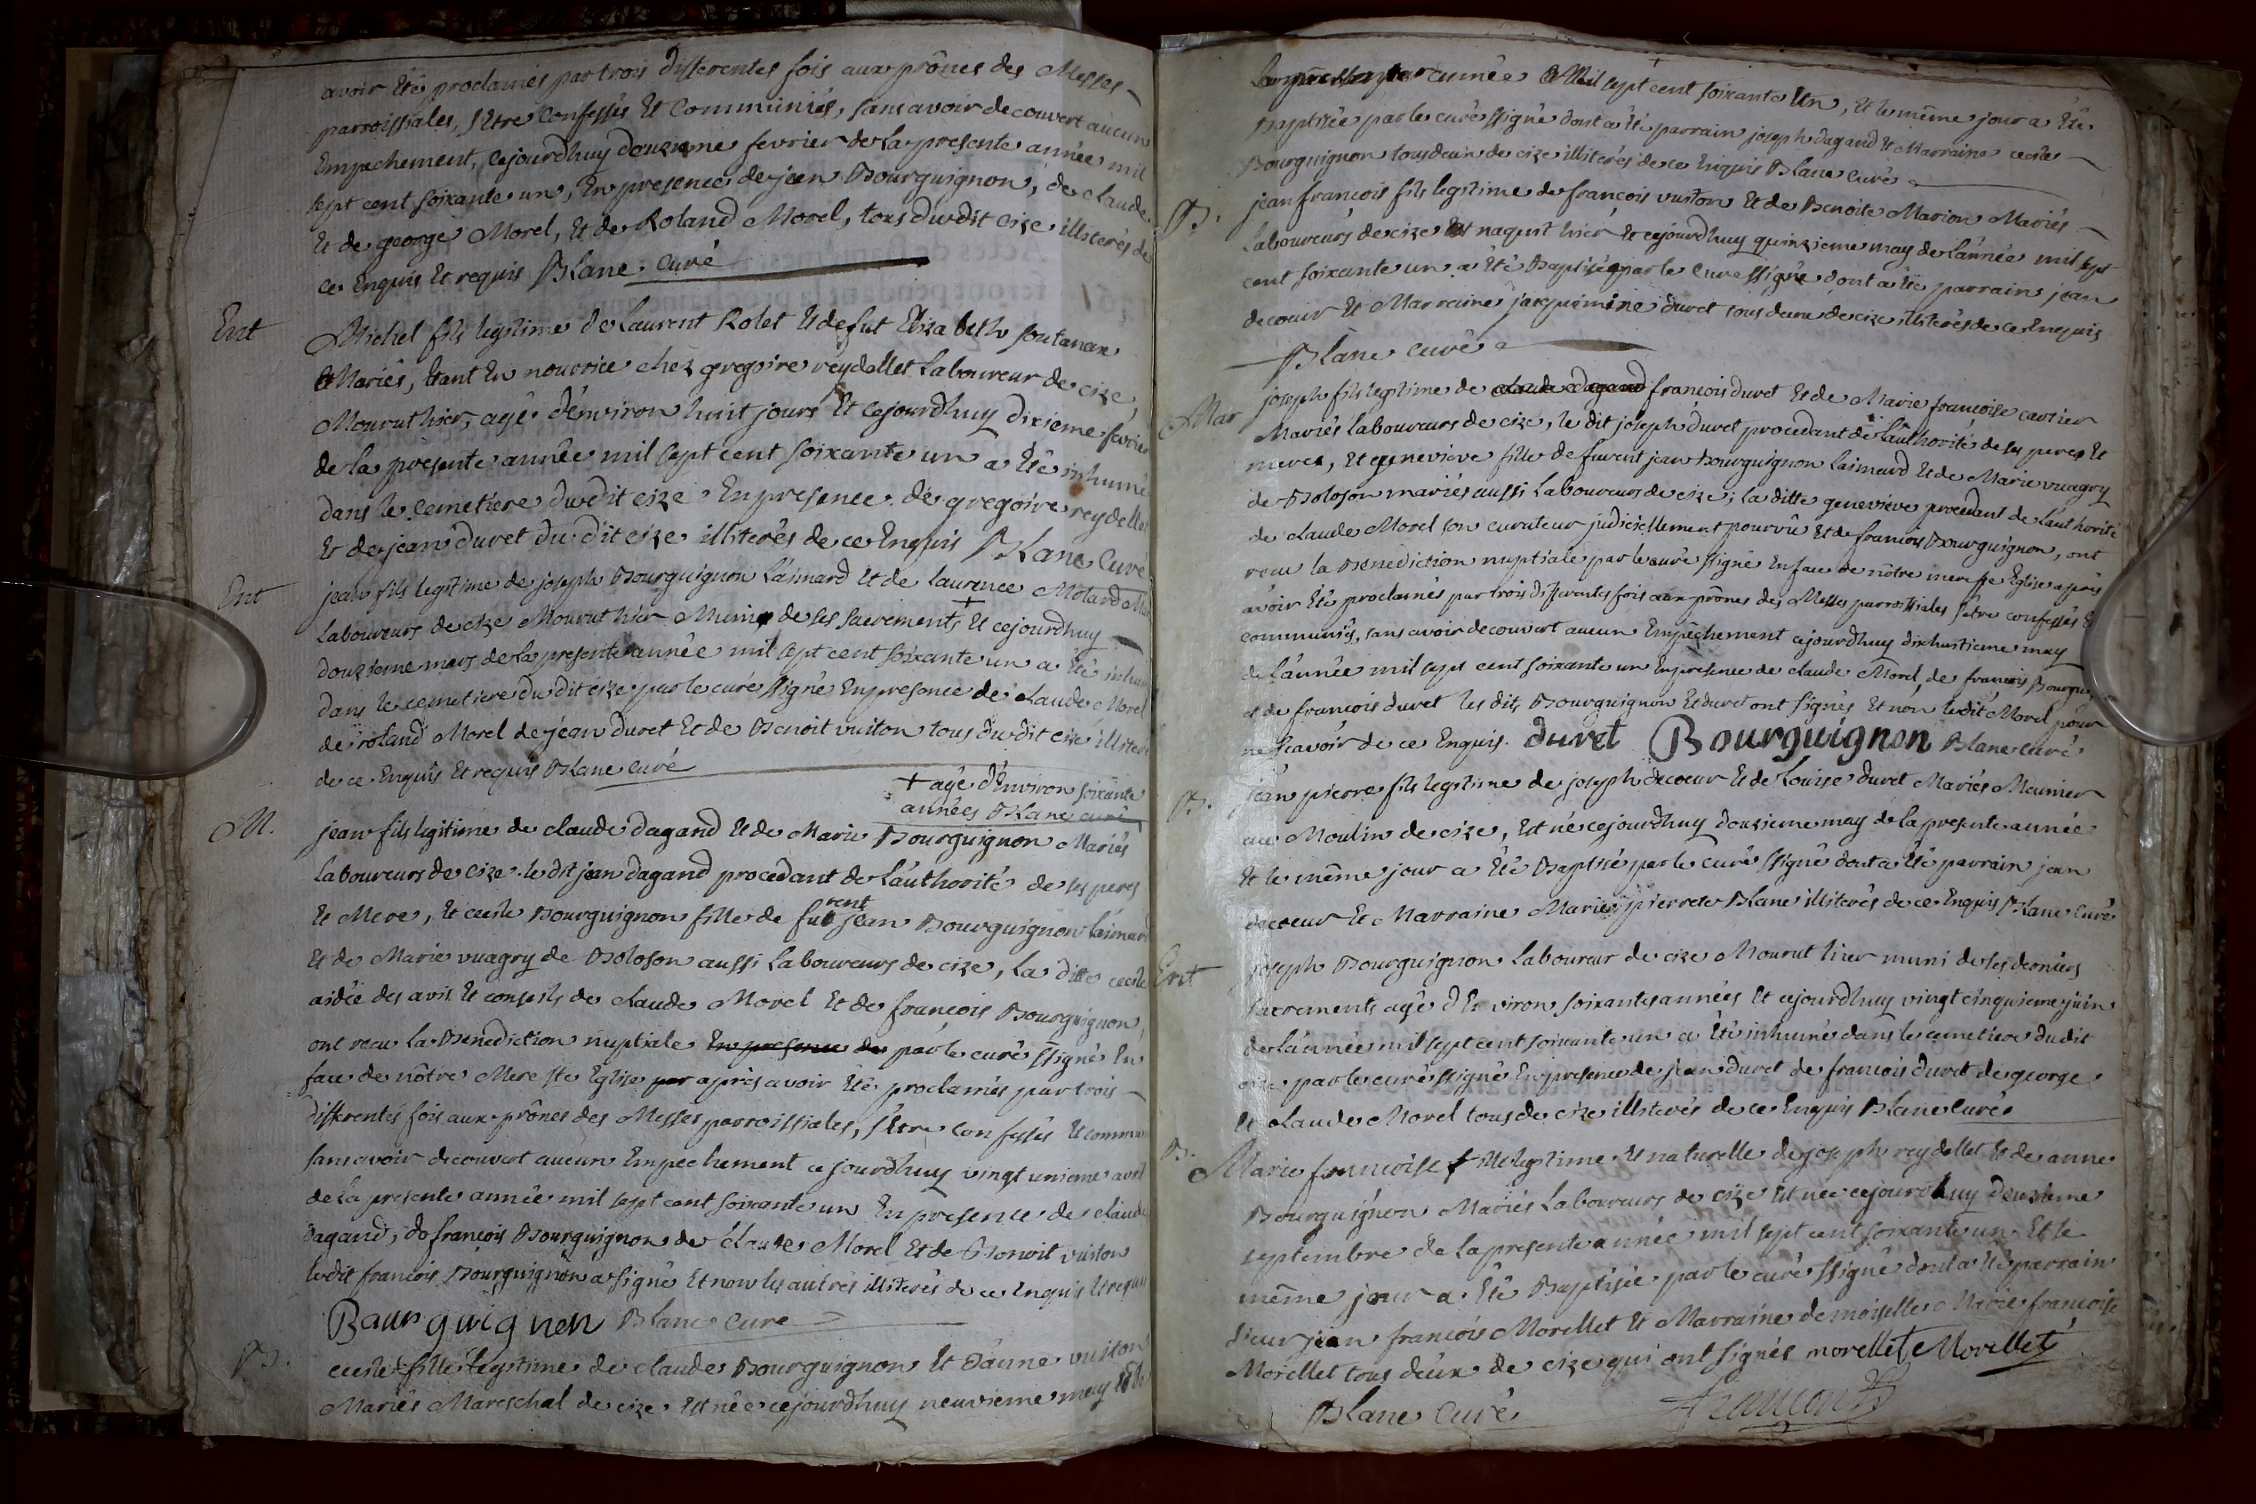 avoir Eté proclamés par trois differentes fois aux prônes des Messes
parroissiales, s'etre Confessés Et Communiés, sans avoir decouvert aucun
Empechement, cejourdhuy douzieme fevrier de la presente année mil
sept cent soixante un, En presence de jean Bourguignon, de claude
Et de george Morel, Et de Roland Morel, tous dudit cize illiterés de
ce Enquis Et requis Blanc Curé
Ent
Michel fils legitime de Laurent Rolet Et de fut Elizabeth
Mariés, Etant En nourrice chez gregoire reydellet Laboureur de cize,
Mourut hier, agé d'environ huit jours Et cejourdhuy dixieme fevrier
de la presente année mil sept cent soixante un a Eté inhumé
dans le cemetiere dudit cize En presence de gregoire reydellet
Et de jean duret du dit cize illiterés de ce Enquis Blanc Curé
Ent
jean fils legitime de joseph Bourguignon Laimard Et de laurence Motard
Laboureurs de cize Mourut hier Muni de ses sacrements + Et cejourdhuy
douzieme mars de la presente année mil sept cent soixante un a Eté
dans le cemetiere du dit cize par le curé ssigné En presence de claude Morel
de roland Morel de jean duret Et de Benoit vuiton tous du dit cize
de ce Enquis Et requis Blanc curé
+ agé d'Environ soixante
années Blanc curé
M.
jean fils legitime de claude dagand Et de Marie Bourguignon Mariés
Laboureurs de cize. le dit jean dagand procedant de L'authorité de ses peres
Et Mere, Et cecile Bourguignon fille de furent jean Bourguignon Laimard
Et de Marie vuagry de Boloson aussi Laboureurs de cize, La ditte cecile
aidée des avis Et conseils de claude Morel Et de francois Bourguignon,
ont recu la Benediction nuptiale En presence de par le curé ssigné En
face de nôtre Mere ste Eglise par apres avoir Eté proclamés par trois
differentes fois aux prônes des Messes parroissiales, s'etre Confessés Et
sans avoir decouvert aucun Empechement cejourdhuy vingt unieme avril
de la presente année mil sept cent soixante un En presence de claude
dagand, de francois Bourguignon de claude Morel Et de Benoit vuiton
ledit francois Bourguignon a signé Et non les autres illiterés de ce Enquis Et requis
Bourguignon Blanc Curé
B.
cecile fille legitime de claude Bourguignon Et d'anne vuiton
Mariés Mareschal de cize Est née cejourdhuy neuvieme may
année Mil sept cent soixante Un, Et le même jour a Eté
Baptisée par le curé ssigné dont a Eté parrain joseph dagand Et Marraine cecile
Bourguignon tous deux de cize illiterés de ce Enquis Blanc curé
B.
jean francois fils legitime de francois vuiton Et de Benoite Marion Mariés
Laboureurs de cize naquit hier Et cejourdhuy quinzieme may de L'année mil sept
cent soixante un a Eté Baptisé par le curé ssigné dont a Eté parrain jean
decoeur Et Marraine jacquimine duret tous deux de cize illiterés de ce Enquis
Blanc curé
Mar
joseph fils legitime de claude dagand francois duret Et de Marie francoise cartier
Mariés Laboureurs de cize, le dit joseph duret procedant de l'authorité de ses peres Et
meres, Et genevieve fille de furent jean Bourguignon Laimard Et de Marie vuagry
de Boloson mariés aussi Laboureurs de cize; la ditte genevieve procedant de l'authorité
de claude Morel son curateur judiciellement pourvû Et de francois Bourguignon, ont
recu la Benediction nuptiale par le curé ssigné En face de nôtre mere ste Eglise apres
avoir Eté proclamés par trois differentes fois aux prônes des Messes parroissiales s'etre confessés Et
communiés, sans avoir decouvert aucun Empêchement cejourdhuy dixhuitieme may
de L'année mil sept cent soixante un En presence de claude Morel, de francois
et de francois duret les dits Bourguignon Et duret ont signés Et non ledit Morel pour
ne scavoir de ce Enquis. duret Bourguignon Blanc curé
B.
jean pierre fils legitime de joseph decoeur Et de Louise duret Mariés Meunier
au Moulin de cize, Est né cejourdhuy douzieme may de la presente année
Et le même jour a Eté Baptisé par le curé ssigné dont a Eté parrain jean
decoeur Et Marraine Marie pierrete Blanc illiterés de ce Enquis Blanc Curé
Ent
joseph Bourguignon Laboureur de cize Mourut hier muni de ses derniers
sacrements agé d'Environ soixante années Et cejourdhuy vingt cinquieme juin
de L'année mil sept cent soixante un a Eté inhumé dans le cemetiere dudit
cize par le curé ssigné En presence de jean duret de francois duret de george
Et claude Morel tous de cize illiterés de ce Enquis Blanc curé
B.
Marie francoise fille legitime Et naturelle de joseph reydellet Et de anne
Bourguignon Mariés Laboureurs de cize Est née cejourdhuy deuxieme
septembre de la presente année mil sept cent soixante un Et le
même jour a Eté Baptisée par le curé ssigné dont a Eté parrain
sieur jean francois Morellet Et Marraine demoiselle Marie francoise
Morellet tous deux de cize qui ont signés morellet Morellet
Blanc Curé